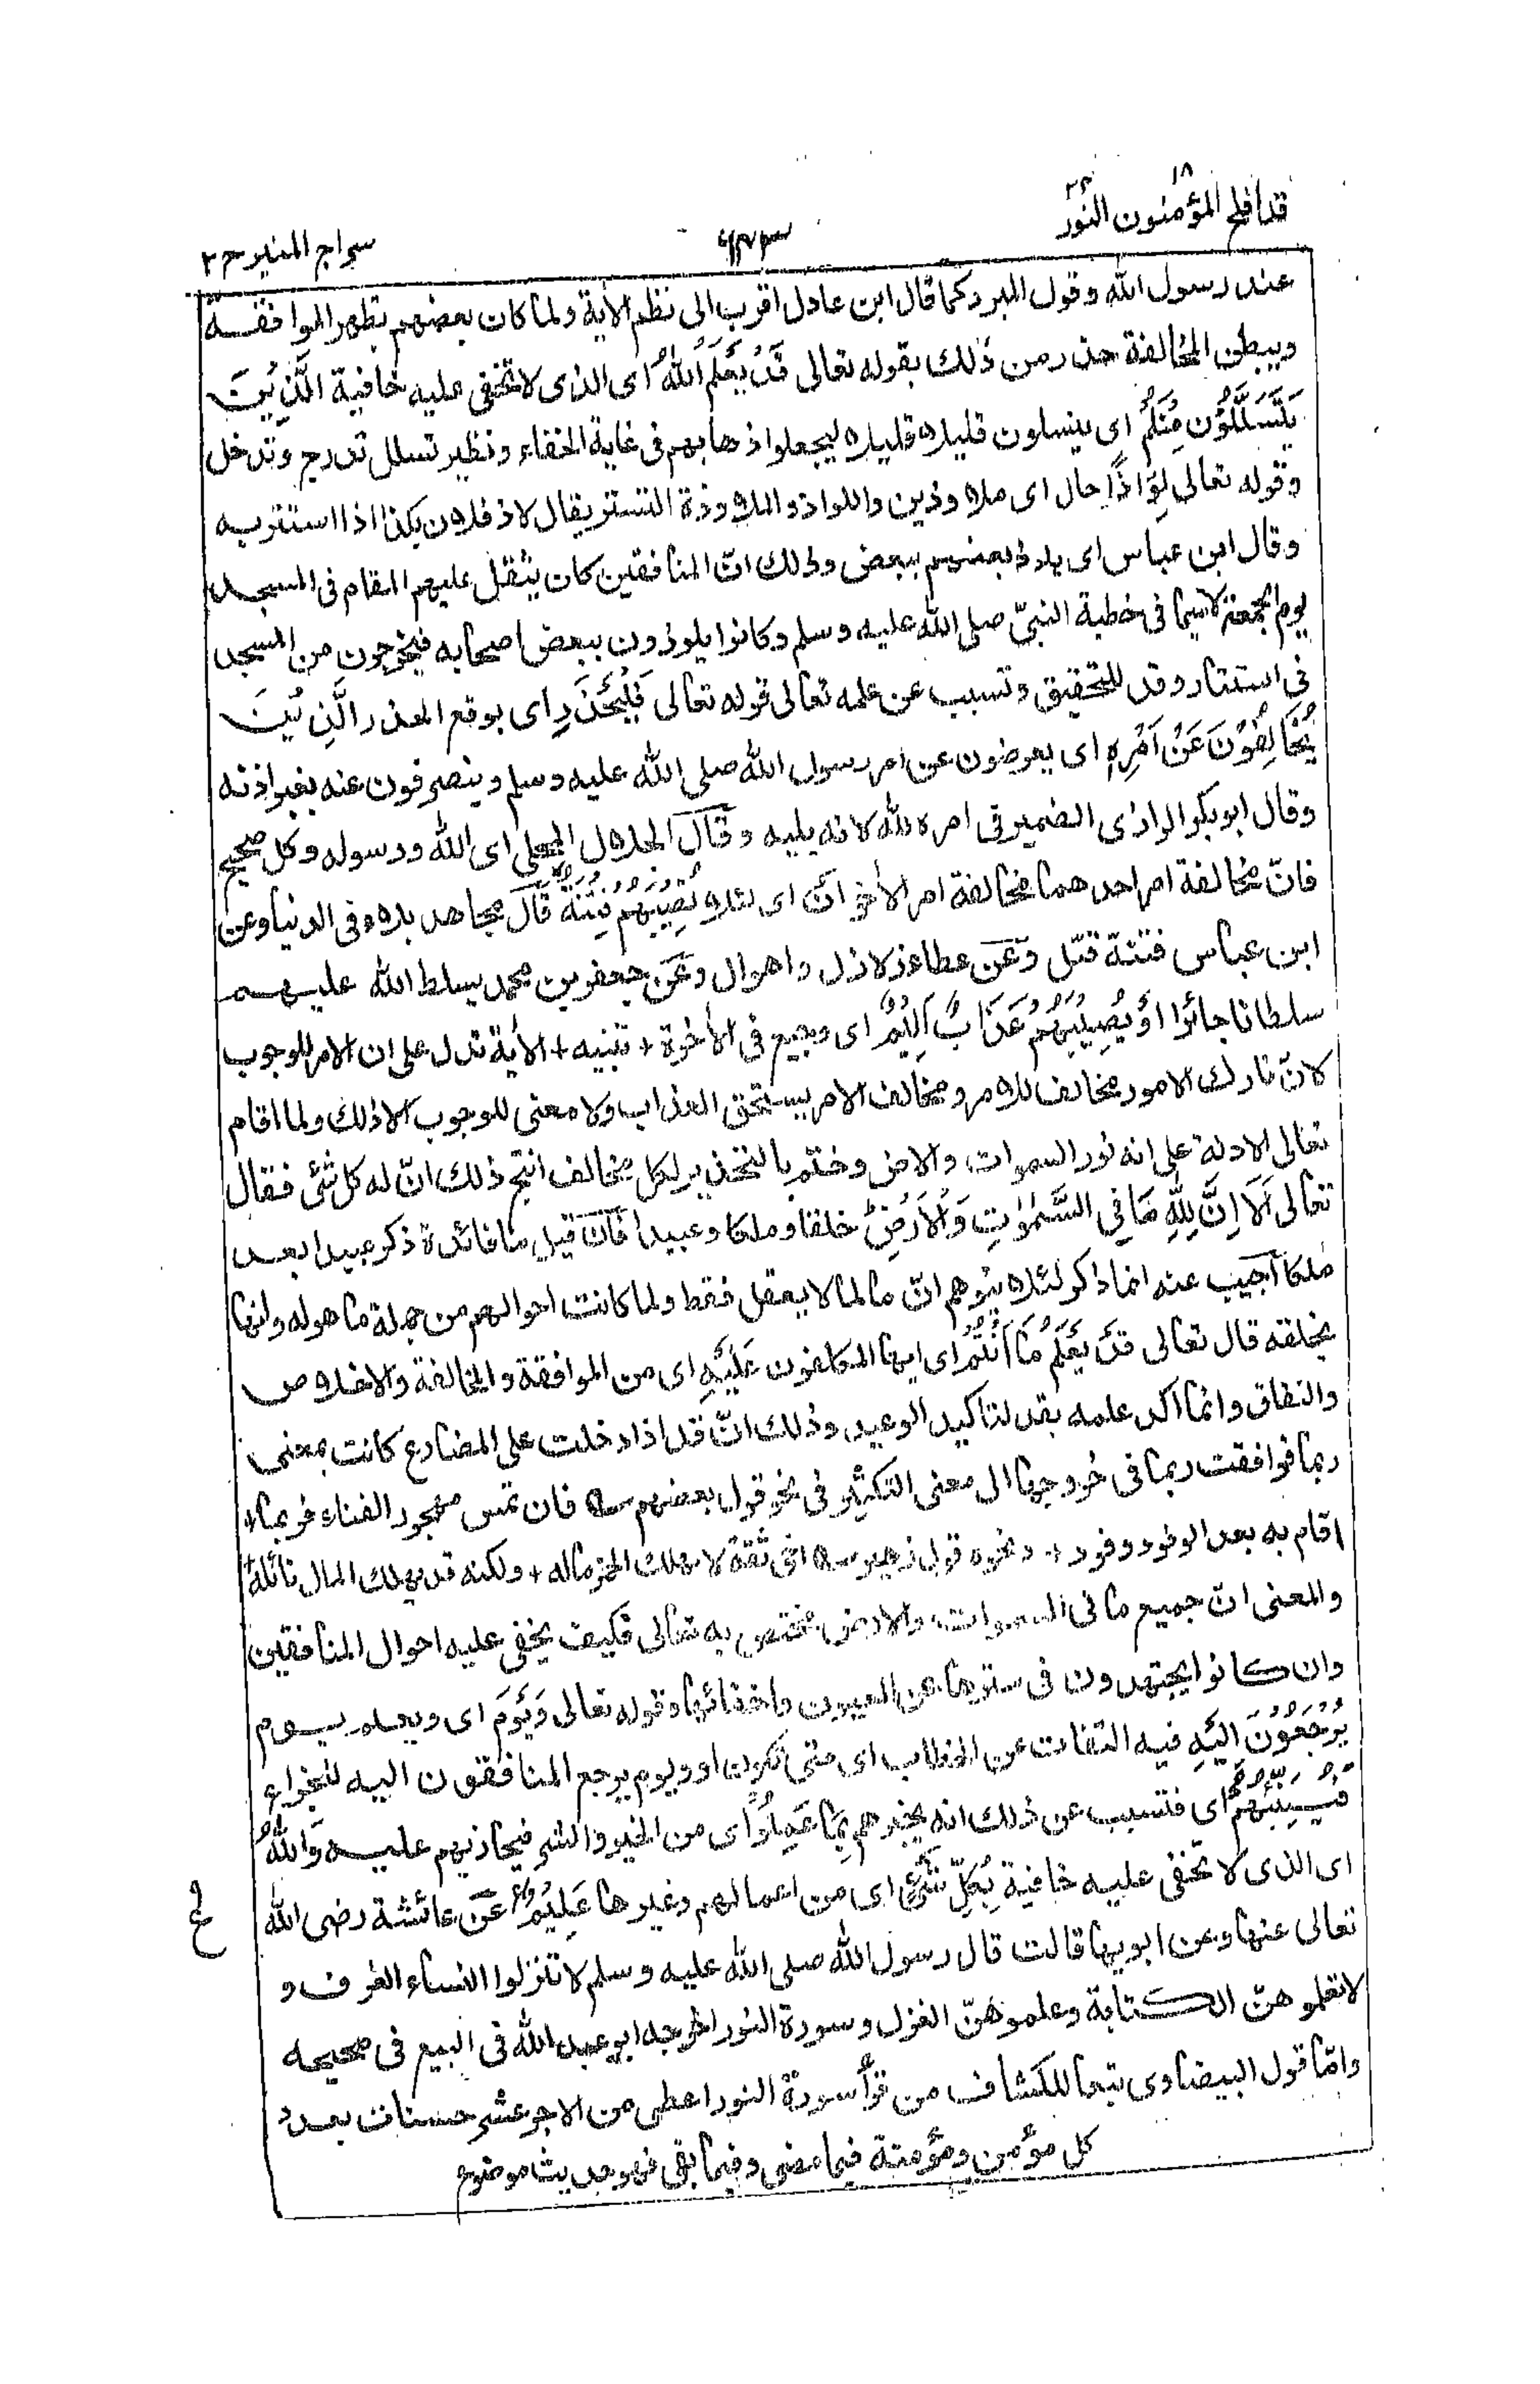 قد افلح المؤمنون ١٨ النور ٢٤
٦٤٣
سراج المنير ج ٢
عند رسول الله وقول المبرد كما قال ابن عادل اقرب الى نظم الاية ولما كان بعضهم يظهر الموافقة
ويبطن المخالفة حذر من ذلك بقوله تعالى قَدْ يَعْلَمُ اللهُ اى الذى لا تخفى عليه خافية الَّذِيْنَ
يَتَسَلَّلُوْنَ مِنْكُمْ اى ينسلون قليلا قليلا ليجعلوا ذهابهم فى غاية الخفاء ونظير تسلل تدرج وتدخل
وقوله تعالى لِوَاذًا حال اى ملاوذين واللواذ والملاوذة التستر يقال لاذ فلان بكذا اذا استتر به
وقال ابن عباس اى يلوذ بعضهم ببعض وذلك انّ المنافقين كان يثقل عليهم المقام فى المسجد
يوم الجمعة لاسيما فى خطبة النبىّ صلى الله عليه وسلم وكانوا يلوذون ببعض اصحابه فيخرجون من المسجد
فى استتار وقد للتحقيق وتسبب عن علمه تعالى قوله تعالى فَلْيَحْذَرِ اى يوقع الحذر الَّذِيْنَ
يُخَالِفُوْنَ عَنْ اَمْرِهٖ اى يعرضون عن امر رسول الله صلى الله عليه وسلم وينصرفون عنه بغير اذنه
وقال ابو بكر الرازى الضمير فى امره لله لانه يليه وقال الجلال المحلى اى الله ورسوله وكل صحيح
فانّ مخالفة امر احدهما مخالفة امر الأخر اَنْ اى لئلا تُصِيْبَهُمْ فِتْنَةٌ قال مجاهد بلاء فى الدنيا وعن
ابن عباس فتنة قتل وعن عطاء زلازل واهوال وعن جعفر بن محمد يسلط الله عليهم
سلطانا جائرا اَوْ يُصِيْبَهُمْ عَذَابٌ اَلِيْمٌ اى وجيع فى الأخرة + تنبيه + الأية تدل على ان الامر للوجوب
لانّ تارك الامور مخالف للامر ومخالف الامر يستحق العذاب ولا معنى للوجوب الا ذلك ولما اقام
تعالى الادلة على انه نور السموات والارض وختم بالتحذير لكل مخالف انتج ذلك انّ له كل شئ فقال
تعالى اَلَا اِنَّ لِلّٰهِ مَا فِى السَّمٰوٰتِ وَالْاَرْضِ خلقا وملكا وعبيدا فان قيل ما فائدة ذكر عبيدا بعد
ملكا اجيب عنه انما ذكر لئلا يتوهم انّ ما لما لا يعقل فقط ولما كانت احوالهم من جملة ما هو له وانها
بخلقه قال تعالى قَدْ يَعْلَمُ مَا اَنْتُمْ اى ايها المكلفون عَلَيْهِ اى من الموافقة والمخالفة والاخلاص
والنفاق وانما اكد علمه بقد لتاكيد الوعيد وذلك انّ قد اذا دخلت على المضارع كانت بمعنى
ربما فوافقت ربما فى خروجها الى معنى التكثير فى نحو قول بعضهم ؎ فان تمس مهجور الفناء فربما +
اقام به بعد الوفود وفود + ونحوه قول زهير ؎ اخى ثقة لا يهلك الخمر ماله + ولكنه قد يهلك المال نائله +
والمعنى انّ جميع ما فى السموات والارض مختص به تعالى فكيف يخفى عليه احوال المنافقين
وان كانوا يجتهدون فى سترها عن العيون واخفائها وقوله تعالى وَيَوْمَ اى ويعلم يوم
يُرْجَعُوْنَ اِلَيْهِ فيه التفات عن الخطاب اى متى تكون او ويوم يرجع المنافقون اليه للجزاء
فَيُنَبِّئُهُمْ اى فتسبب عن ذلك انه يخبرهم بِمَا عَمِلُوْا اى من الخير والشر فيجازيهم عليه وَاللهُ
اى الذى لا تخفى عليه خافية بِكُلِّ شَىْءٍ اى من اعمالهم وغيرها عَلِيْمٌ عن عائشة رضى الله
تعالى عنها وعن ابويها قالت قال رسول الله صلى الله عليه وسلم لا تنزلوا النساء الغرف و
لا تعلموهنّ الكتابة وعلموهنّ الغزل وسورة النور اخرجه ابو عبد الله فى البيع فى صحيحه
وامّا قول البيضاوى تبعا للكشاف من قرأ سورة النور اعطى من الاجر عشر حسنات بعدد
كل مؤمن ومؤمنة فيما مضى وفيما بقى فهو حديث موضوع